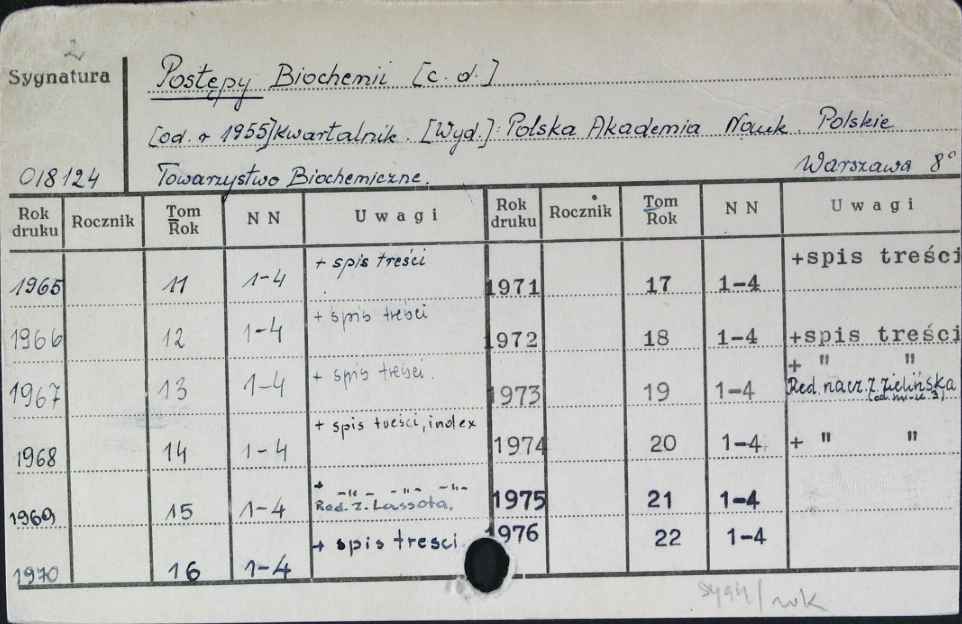 2
Sygnatura
Postępy Biochemii [c.d.]
[od r 1955] Kwartalnik. [Wyd.]: Polska Akademia Nauk. Polskie
018124 Towarzystwo Biochemiczne. Warszawa 8°
Rok druku Rocznik Tom Rok NN Uwagi Rok druku Rocznik Tom Rok NN Uwagi
1965 11 1-4 + spis treści 1971 17 1-4 +spis treści
1966 12 1-4 + spis treści 1972 18 1-4 +spis treści
1967 13 1-4 + spis treści. 1973 19 1-4 + " " Red. nacz. Z. Zielińska
1968 14 1-4 + spis treści, index 1974 20 1-4 + " "
1969 15 1-4 + -"- -"- -"- Red. Z. Lassota. 1975 21 1-4
1970 16 1-4 + spis tresci. 1976 22 1-4
sygn/rok